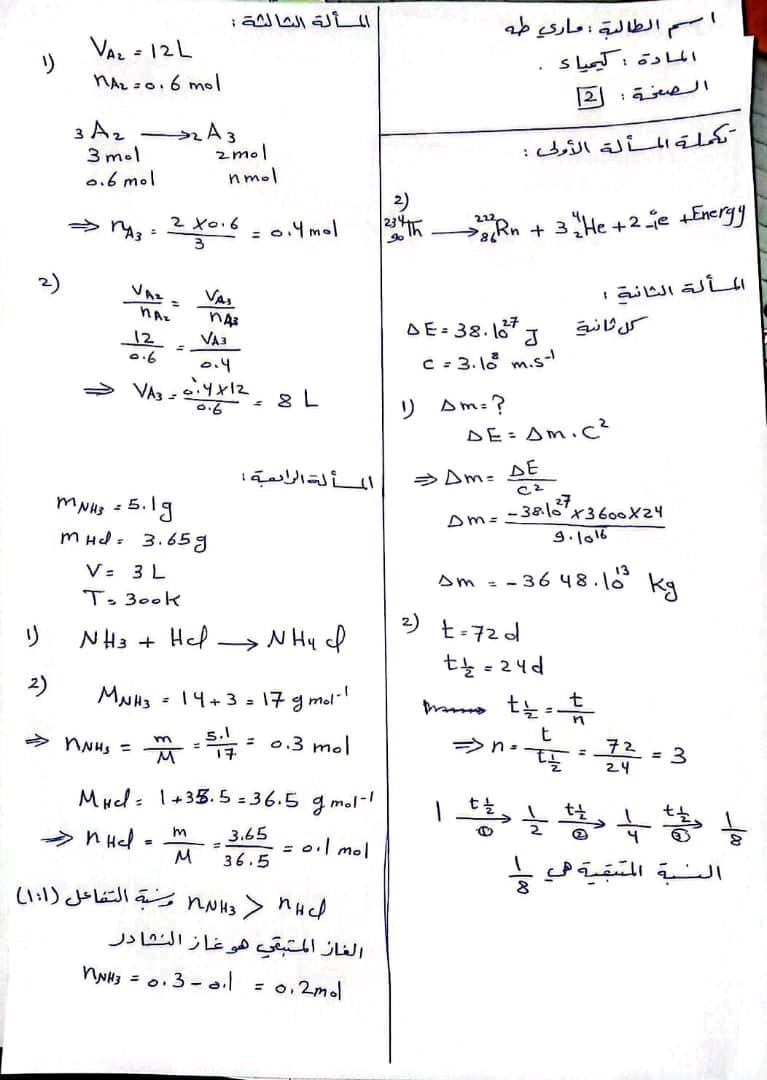 اسم الطالبة : ماري طه
المادة : كيمياء .
الصفحة : 2
تكملة المسألة الأولى :
2)
²³⁴₉₀Th ⟶ ²²²₈₆Rn + 3 ⁴₂He + 2 ⁰₋₁e + Energy
المسألة الثانية :
ΔE = 38.10²⁷ J كل ثانية
C = 3.10⁸ m.s⁻¹
1) Δm = ?
ΔE = Δm . C²
⇒ Δm = ΔE / C²
Δm = -38.10²⁷ × 3600 × 24 / 9.10¹⁶
Δm = -3648.10¹³ kg
2) t = 72 d
t½ = 24 d
t½ = t / n
⇒ n = t / t½ = 72 / 24 = 3
1 —t½→ ① 1/2 —t½→ ② 1/4 —t½→ ③ 1/8
النسبة المتبقية هي 1/8
المسألة الثالثة :
1) V_A₂ = 12 L
n_A₂ = 0.6 mol
3 A₂ ⟶ 2 A₃
3 mol 2 mol
0.6 mol n mol
⇒ n_A₃ = 2 × 0.6 / 3 = 0.4 mol
2)
V_A₂ / n_A₂ = V_A₃ / n_A₃
12 / 0.6 = V_A₃ / 0.4
⇒ V_A₃ = 0.4 × 12 / 0.6 = 8 L
المسألة الرابعة :
m_NH₃ = 5.1 g
m_HCl = 3.65 g
V = 3 L
T = 300 K
1) NH₃ + HCl ⟶ NH₄Cl
2) M_NH₃ = 14 + 3 = 17 g mol⁻¹
⇒ n_NH₃ = m / M = 5.1 / 17 = 0.3 mol
M_HCl = 1 + 35.5 = 36.5 g mol⁻¹
⇒ n_HCl = m / M = 3.65 / 36.5 = 0.1 mol
n_NH₃ > n_HCl ونسبة التفاعل (1:1)
الغاز المتبقي هو غاز النشادر
n_NH₃ = 0.3 - 0.1 = 0.2 mol